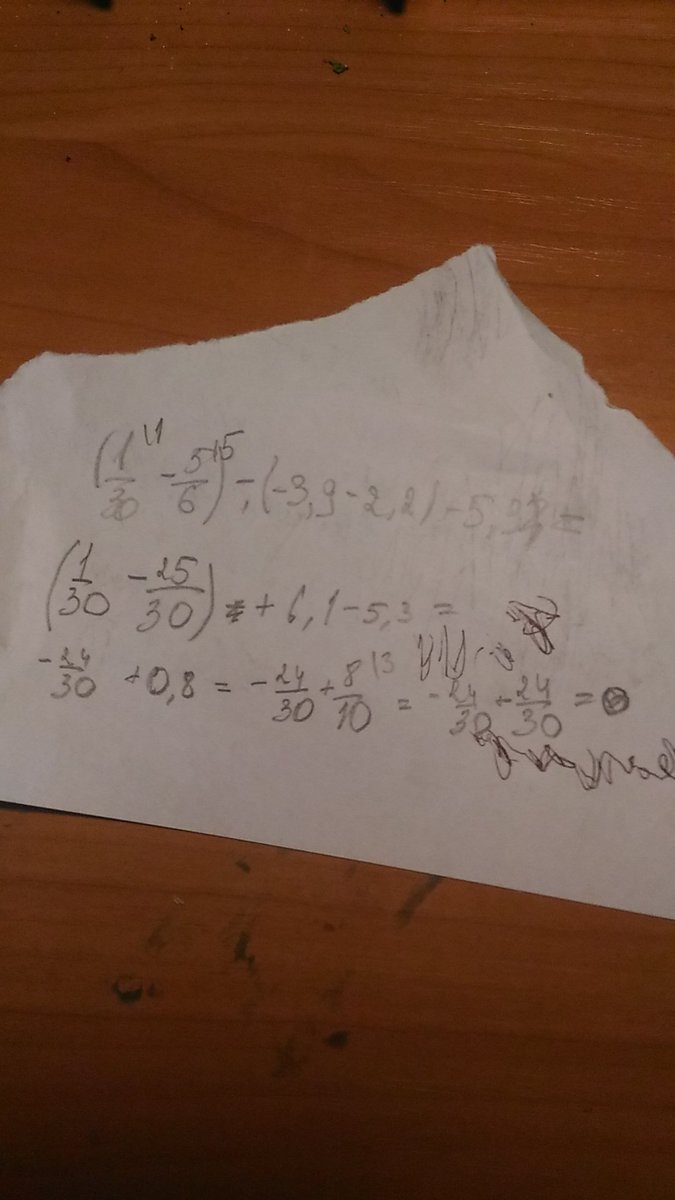 (1/30 \1 - 5/6 \5) - (-3,9 - 2,2) - 5,3 =
(1/30 - 25/30) + 6,1 - 5,3 =
-24/30 + 0,8 = -24/30 + 8/10 \3 = -24/30 + 24/30 = 0